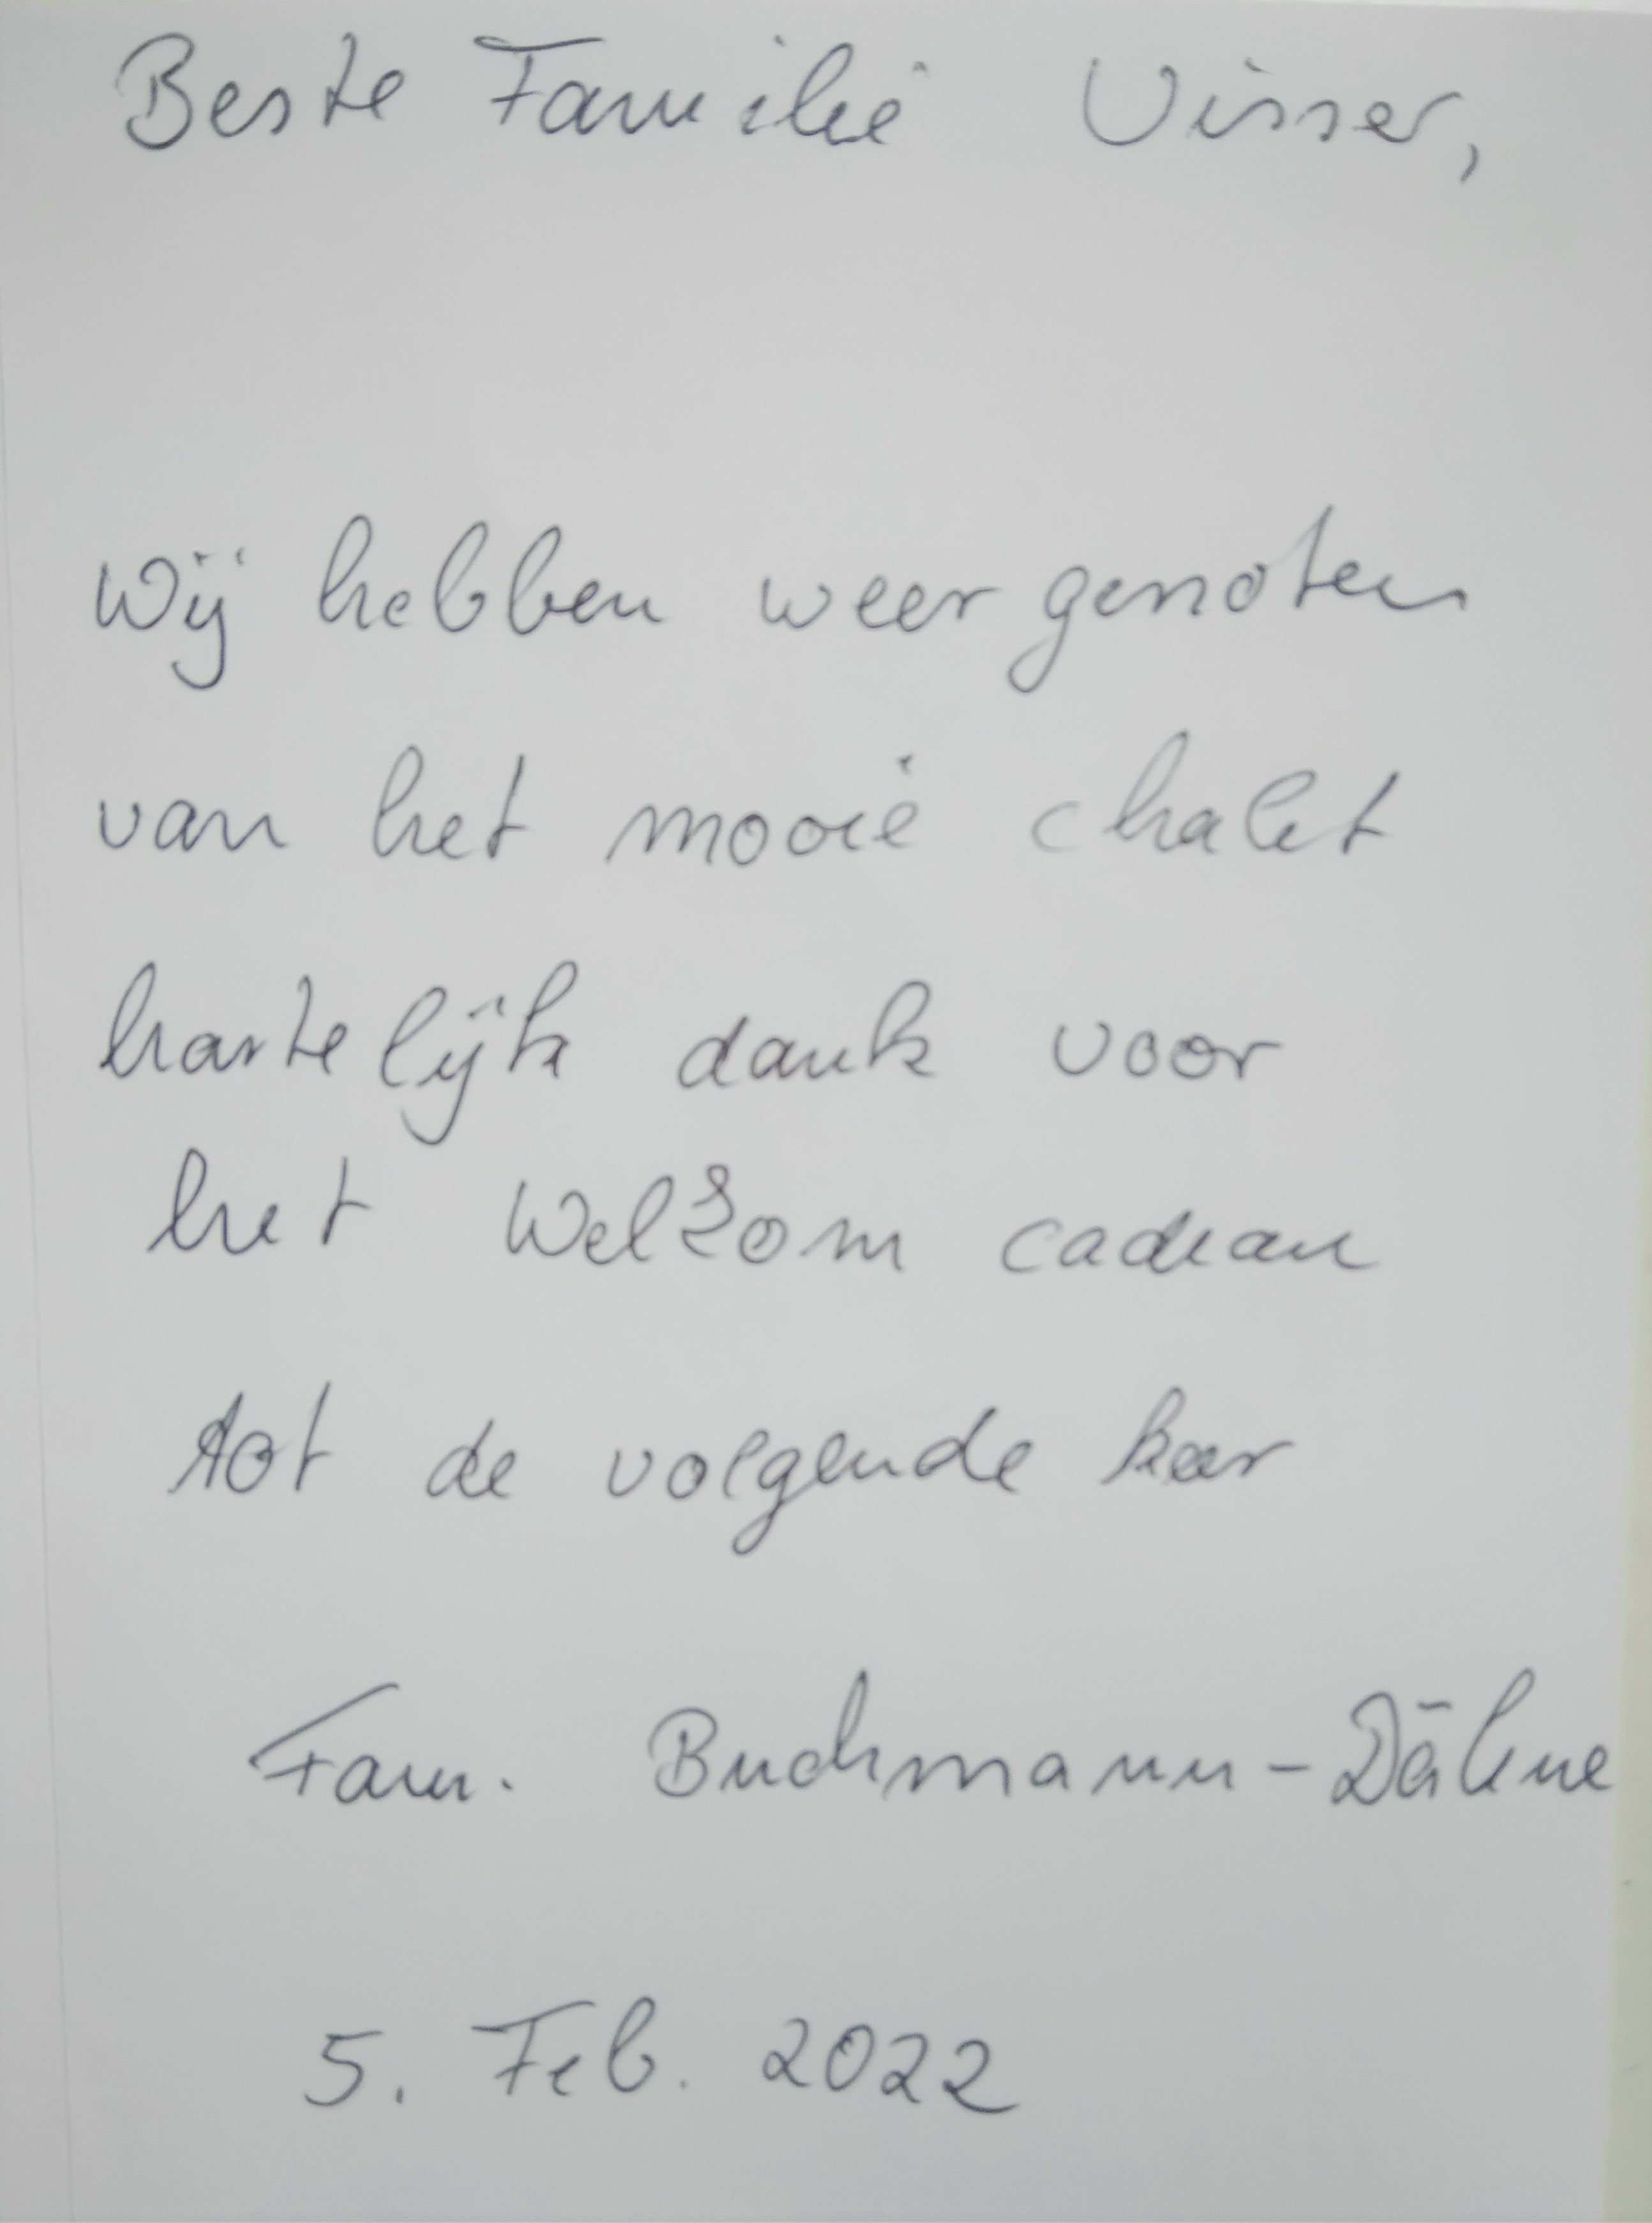 Beste Familie Visser,
Wij hebben weer genoten
van het mooie chalet
hartelijk dank voor
het Welkom cadeau
tot de volgende keer
Fam. Buchmann-Dähne
5. Feb. 2022